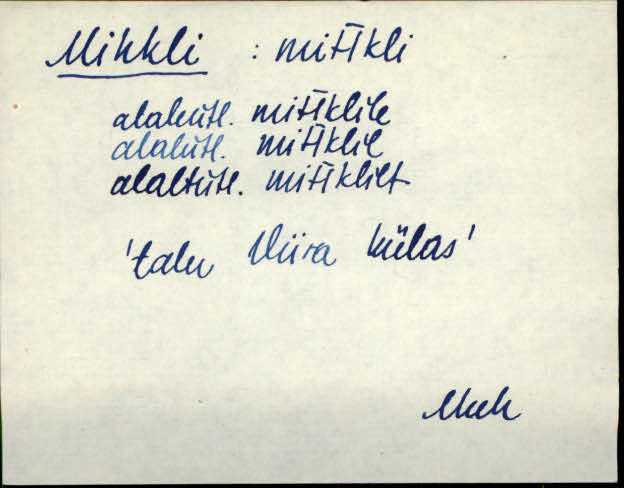 Mihkli : mih̆̄kli
alaleütl. mih̆̄klile
alalütl. mih̆̄klil
alaltütl. mih̆̄klilt
'talu Viira külas'
Muh